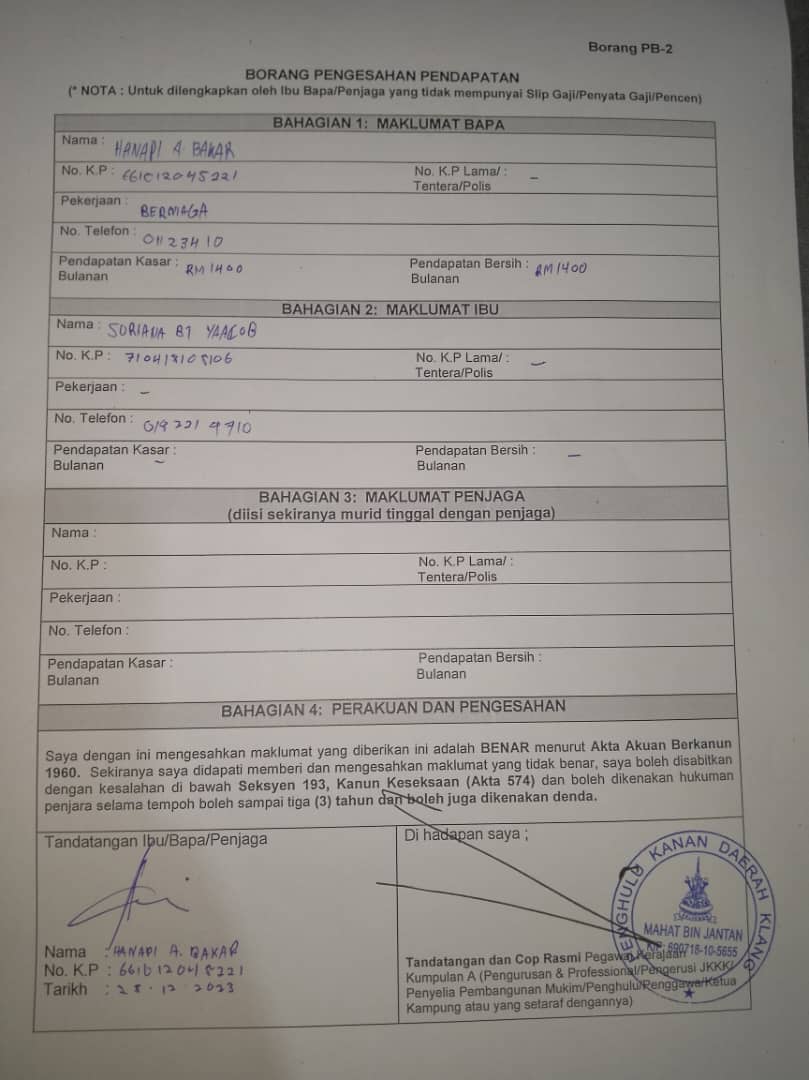 Borang PB-2
BORANG PENGESAHAN PENDAPATAN
(* NOTA : Untuk dilengkapkan oleh Ibu Bapa/Penjaga yang tidak mempunyai Slip Gaji/Penyata Gaji/Pencen)
BAHAGIAN 1: MAKLUMAT BAPA
Nama : HANAPI A. BAKAR
No. K.P : 661012045221 No. K.P Lama/ : –
Tentera/Polis
Pekerjaan : BERNIAGA
No. Telefon : 01123410
Pendapatan Kasar : RM1400 Pendapatan Bersih : RM1400
Bulanan Bulanan
BAHAGIAN 2: MAKLUMAT IBU
Nama : SURIANA BT YAACOB
No. K.P : 710418105106 No. K.P Lama/ : –
Tentera/Polis
Pekerjaan : –
No. Telefon : 019 221 9710
Pendapatan Kasar : – Pendapatan Bersih : –
Bulanan Bulanan
BAHAGIAN 3: MAKLUMAT PENJAGA
(diisi sekiranya murid tinggal dengan penjaga)
Nama :
No. K.P : No. K.P Lama/ :
Tentera/Polis
Pekerjaan :
No. Telefon :
Pendapatan Kasar : Pendapatan Bersih :
Bulanan Bulanan
BAHAGIAN 4: PERAKUAN DAN PENGESAHAN
Saya dengan ini mengesahkan maklumat yang diberikan ini adalah BENAR menurut Akta Akuan Berkanun
1960. Sekiranya saya didapati memberi dan mengesahkan maklumat yang tidak benar, saya boleh disabitkan
dengan kesalahan di bawah Seksyen 193, Kanun Keseksaan (Akta 574) dan boleh dikenakan hukuman
penjara selama tempoh boleh sampai tiga (3) tahun dan boleh juga dikenakan denda.
Tandatangan Ibu/Bapa/Penjaga
Nama : HANAPI A. BAKAR
No. K.P : 661012045221
Tarikh : 28.12.2023
Di hadapan saya ;
PENGHULU KANAN DAERAH KLANG
MAHAT BIN JANTAN
K/P: 690718-10-5655
Tandatangan dan Cop Rasmi Pegawai Kerajaan
Kumpulan A (Pengurusan & Professional/Pengerusi JKKK/
Penyelia Pembangunan Mukim/Penghulu/Penggawa/Ketua
Kampung atau yang setaraf dengannya)